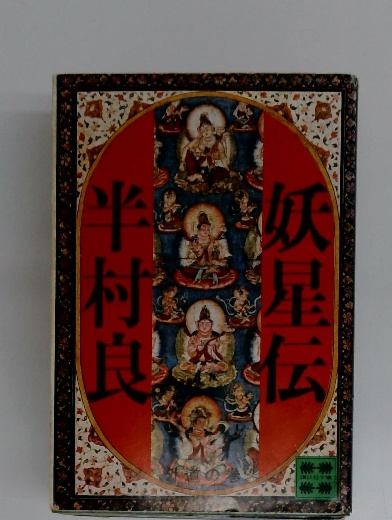 妖星伝
半村良